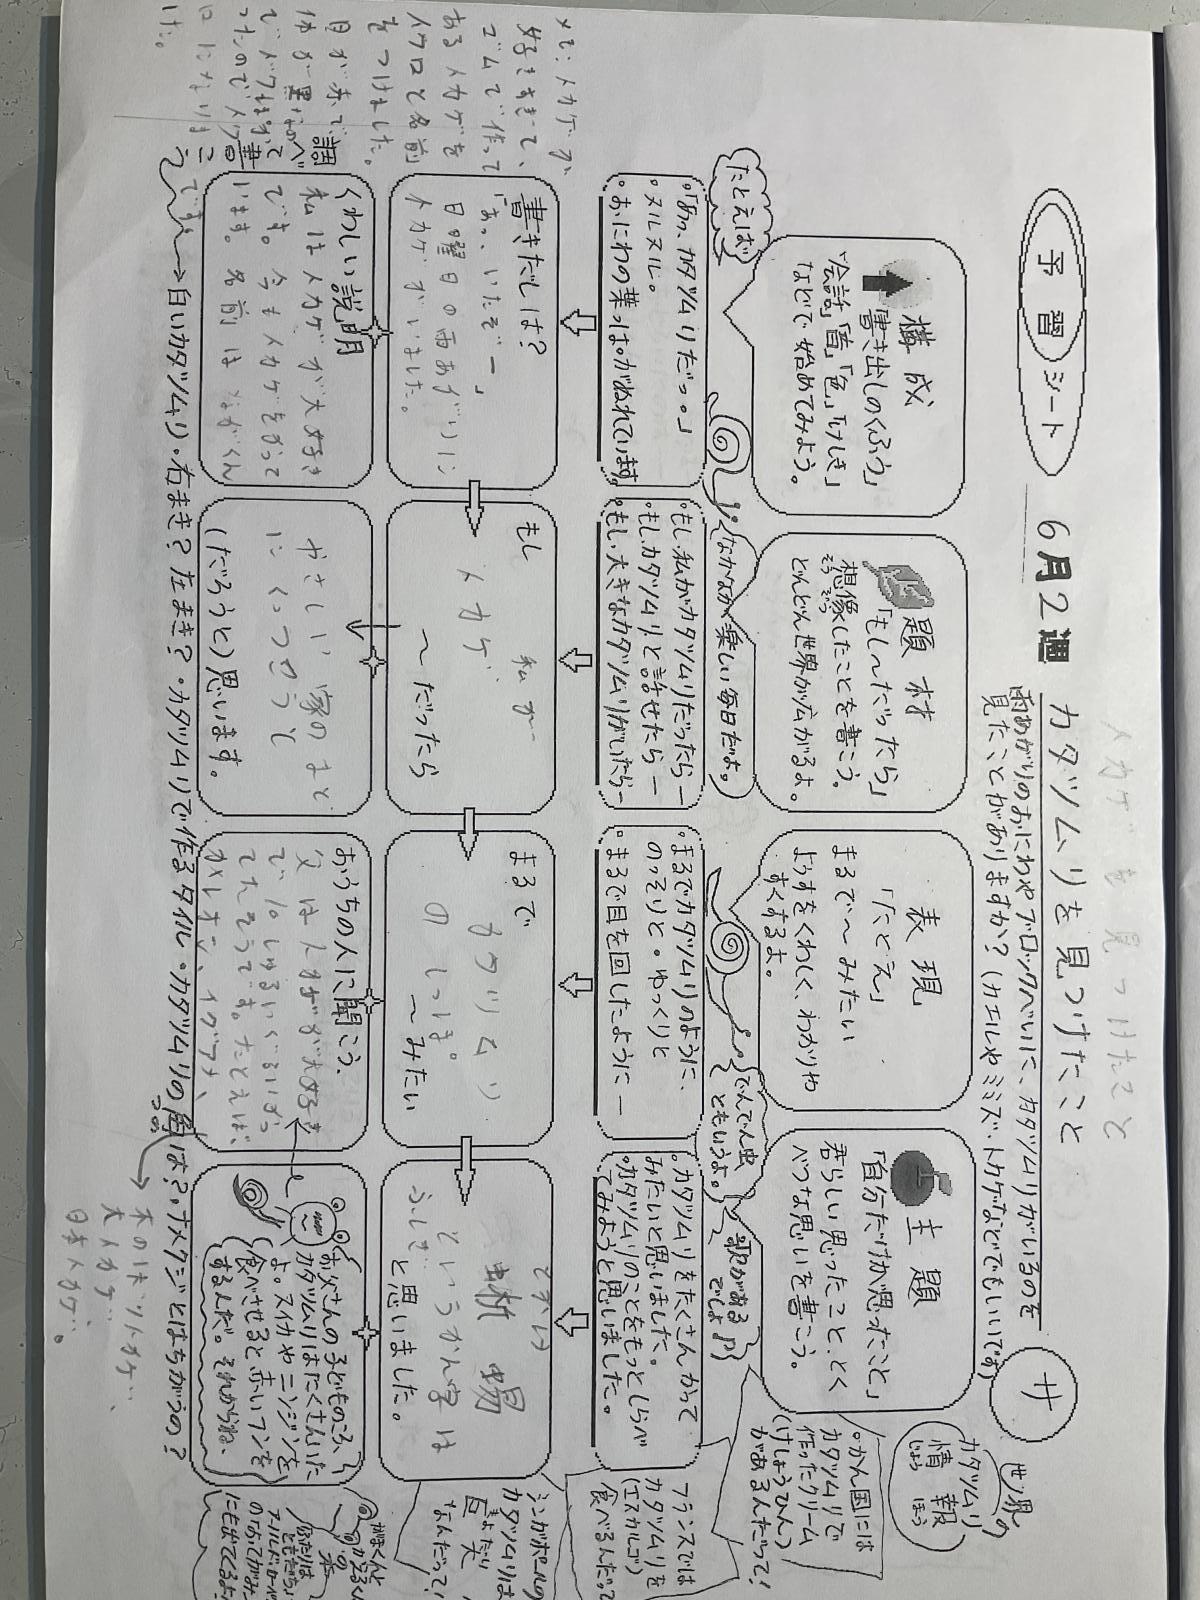 予習シート
6月2週
カタツムリを見つけたこと
トカゲを見つけたこと
雨あがりのおにわやブロックべいに、カタツムリがいるのを
見たことがありますか?(カエルやミミズ・トカゲなどでもいいです)
サ
世界の
カタツムリ
情報
じょうほう
構成
「書き出しのくふう」
"会話"「音」「色」「けしき」
などで始めてみよう。
題材
「もし~だったら」
想像したことを書こう。
そうぞう
どんどん世界が広がるよ。
表現
「たとえ」
まるで~みたい
ようすをくわしく、わかりや
すくするよ。
主題
「自分だけが思ったこと」
君らしい思ったこと、とく
べつな思いを書こう。
。かん国には
カタツムリで
作ったクリーム
(けしょうひん)
があるんだって!
たとえば
なかなか楽しい毎日だよ。
でんでん虫
ともいうよ。
歌がある
でしょ♪
。「あっ、カタツムリだっ。」
。ヌルヌル。
。おにわの葉っぱがぬれています。
。もし、私がカタツムリだったらー
。もしカタツムリと話せたらー
。もし、大きなカタツムリがいたらー
。まるでカタツムリのように、
のっそりと。ゆっくりと
。まるで目を回したようにー
。カタツムリをたくさんかって
みたいと思いました。
。カタツムリのことをもっとしらべ
てみようと思いました。
フランスでは
カタツムリを
(エスカルゴ)
食べるんだって
書きだしは?
「あっ、いたぞー」
日曜日の雨あがりに
トカゲがいました。
もし
私が
トカゲ
~だったら
まるで
カタツムリ
のしっぽ。
~みたい
蜥蜴
というかん字は
ふしぎ
と思いました。
シンガポールの
カタツムリは
なんだって!
くわしい説明
私はトカゲが大好き
です。今もトカゲをかって
います。名前は
です。
やさしい家のまど
にくっつこうと
(だろうと)思います。
おうちの人に聞こう。
父はトカゲが大好き
で、10しゅるいぐらいかっ
てたそうです。たとえば、
カメレオン、イグアナ、
お父さんの子どものころ、
カタツムリはたくさんいた
よ。スイカやニンジンを
食べさせると赤いフンを
するんだ。それからね、
がまくんと
かえるくん
の
本
ふたりは
ともだち
白いカタツムリ・右まき?左まき?・カタツムリで作るタイル・カタツムリの角は?・ナメクジとはちがうの?
つの
木のぼりトカゲ、
大トカゲ、
日本トカゲ。
メモ:トカゲが
好きすぎて、
ゴムで作って
あるトカゲを
イクロと名前
をつけました。
目が赤で、
体が黒